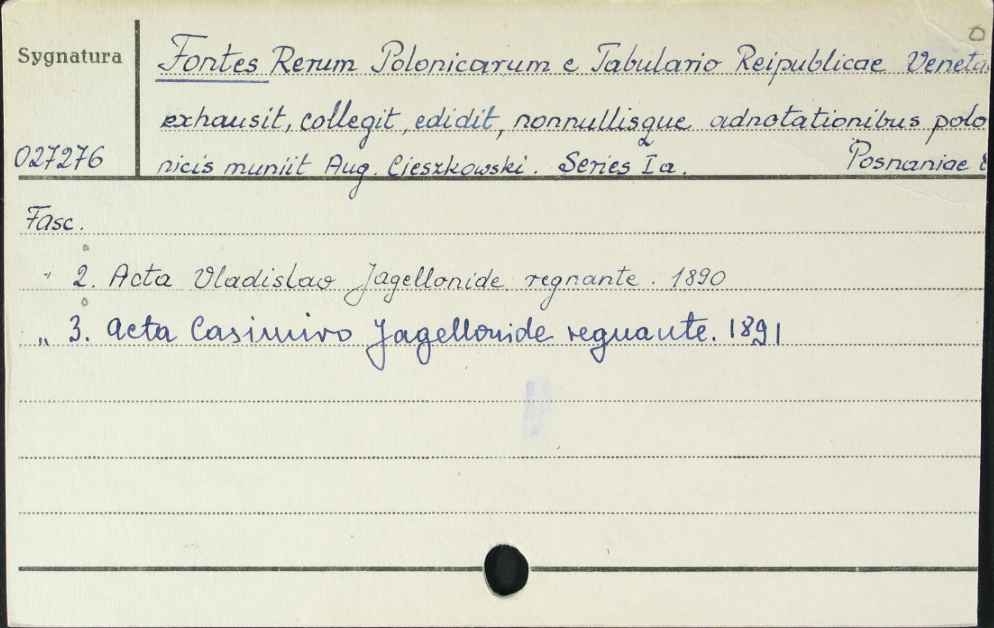 Sygnatura
Fontes Rerum Polonicarum e Tabulario Reipublicae Veneta
exhausit, collegit, edidit, nonnullisque adnotationibus polo
027276
nicis muniit Aug. Cieszkowski. Series Ia. Posnaniae
Fasc.
" 2. Acta Vladislao Jagellonide regnante. 1890
" 3. Acta Casimiro Jagellonide regnante. 1891